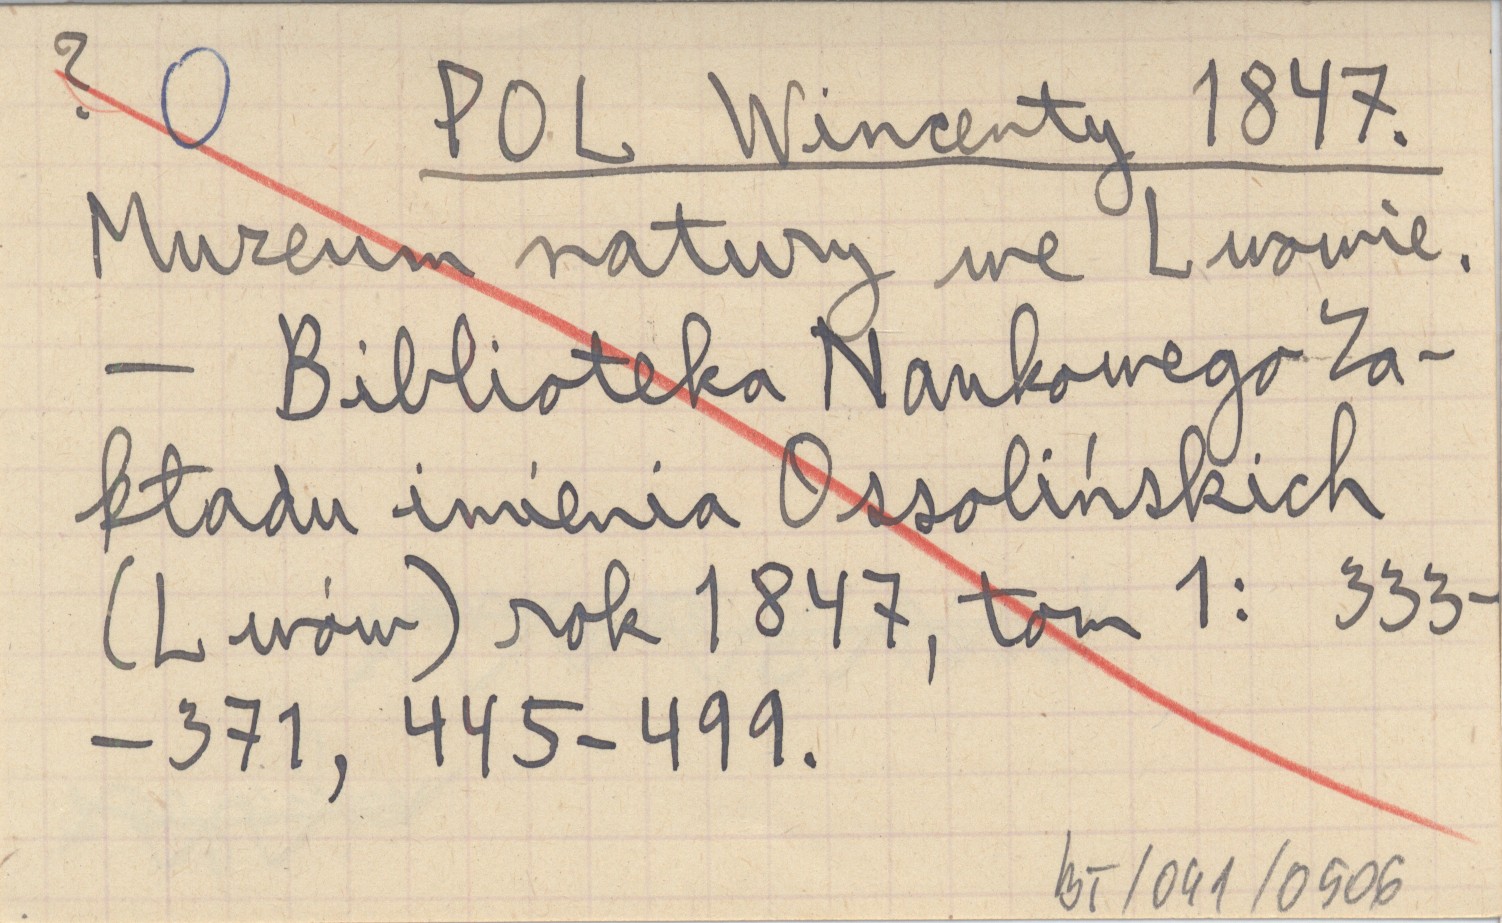 ? O POL Wincenty 1847.
Muzeum natury we Lwowie.
— Biblioteka Naukowego Za-
kładu imienia Ossolińskich
(Lwów) rok 1847, tom 1: 333-
-371, 445-499.
BT/041/0506